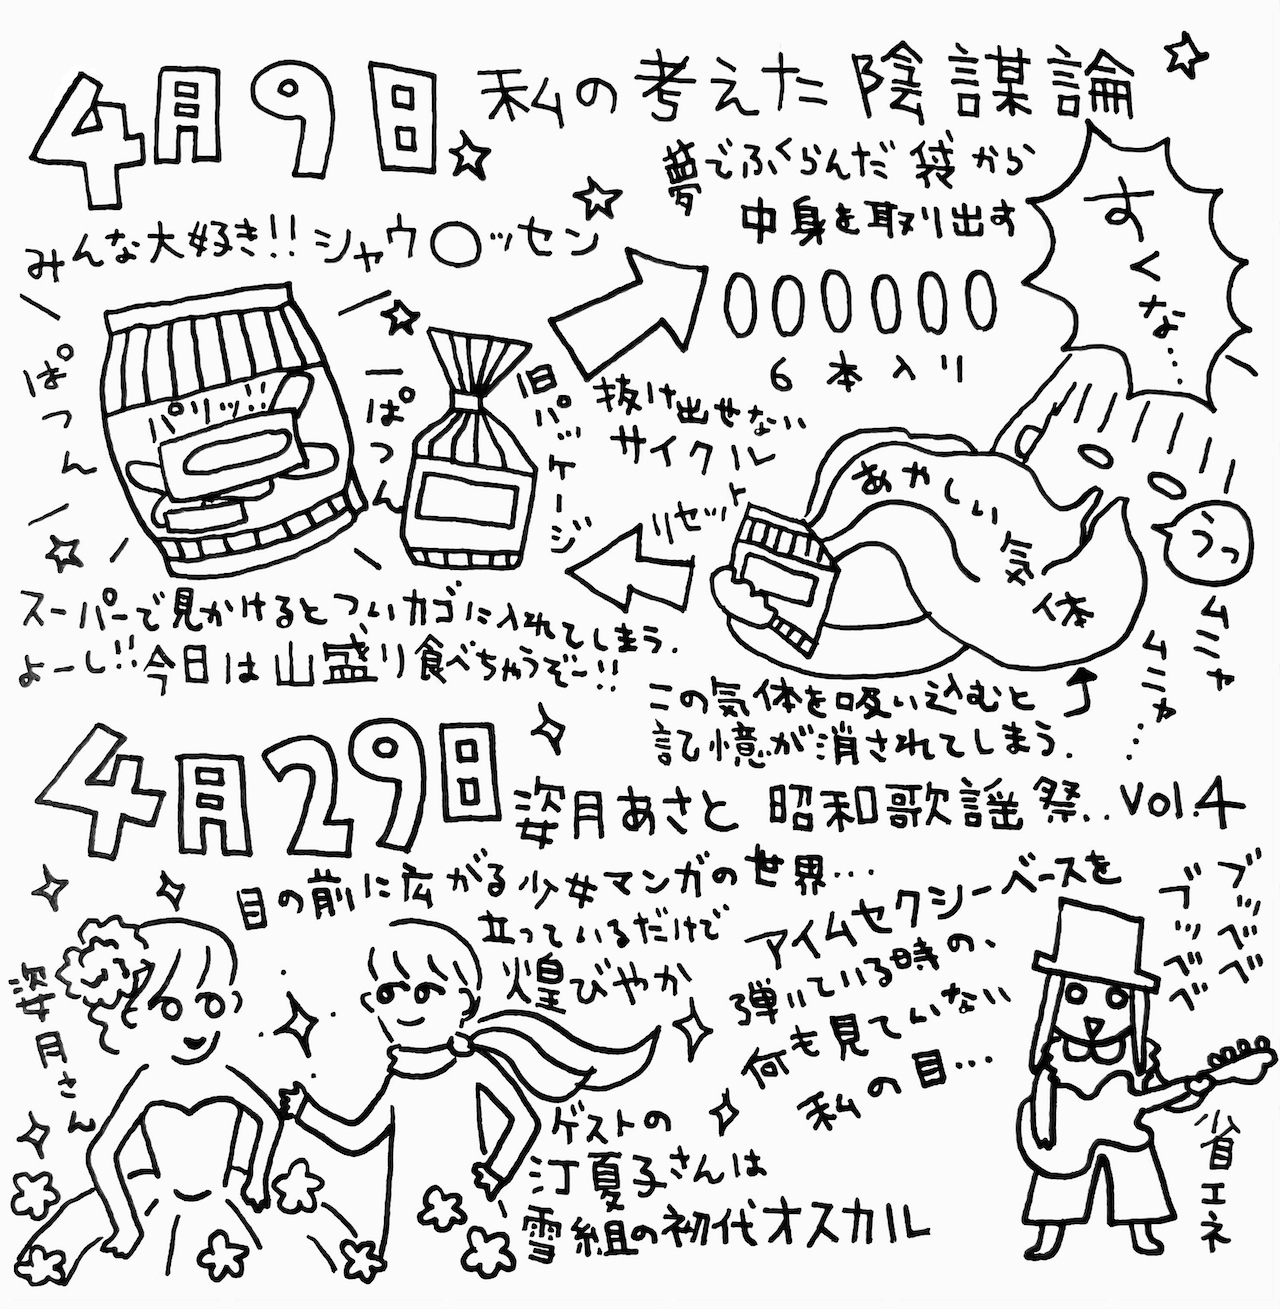 4月9日
私の考えた陰謀論
みんな大好き!!シャウ○ッセン
夢でふくらんだ袋から
中身を取り出す
すくな…
6本入り
ぱつん
パリッ!!
ーぱつん
旧パッケージ
抜け出せない
サイクル
リセット
あやしい気体
うっ
ムニャ
ムニャ…
スーパーで見かけるとついカゴに入れてしまう.
よーし!!今日は山盛り食べちゃうぞー!!
この気体を吸い込むと
記憶が消されてしまう.
4月29日
姿月あさと 昭和歌謡祭..Vol.4
目の前に広がる少女マンガの世界…
立っているだけで
煌びやか
姿月さん
アイムセクシーベースを
弾いている時の、
何も見ていない
私の目…
ブッベベ
ブッベベ
ゲストの
汀夏子さんは
雪組の初代オスカル
省エネ